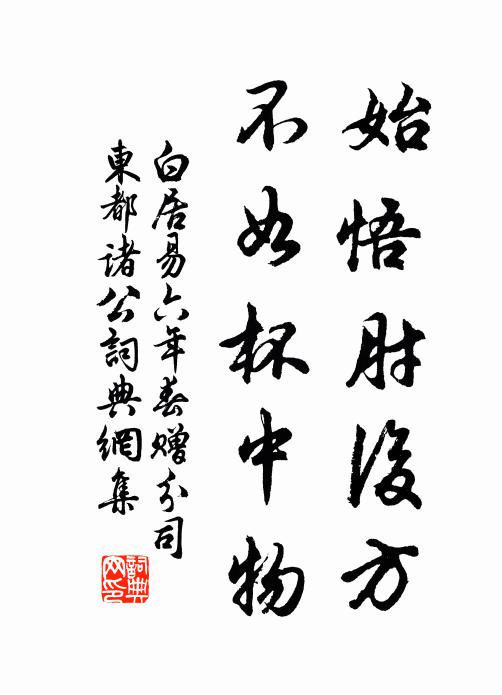 始悟肘後方
不如杯中物
白居易六年春贈分司
東都諸公詞典網集
詞典網印